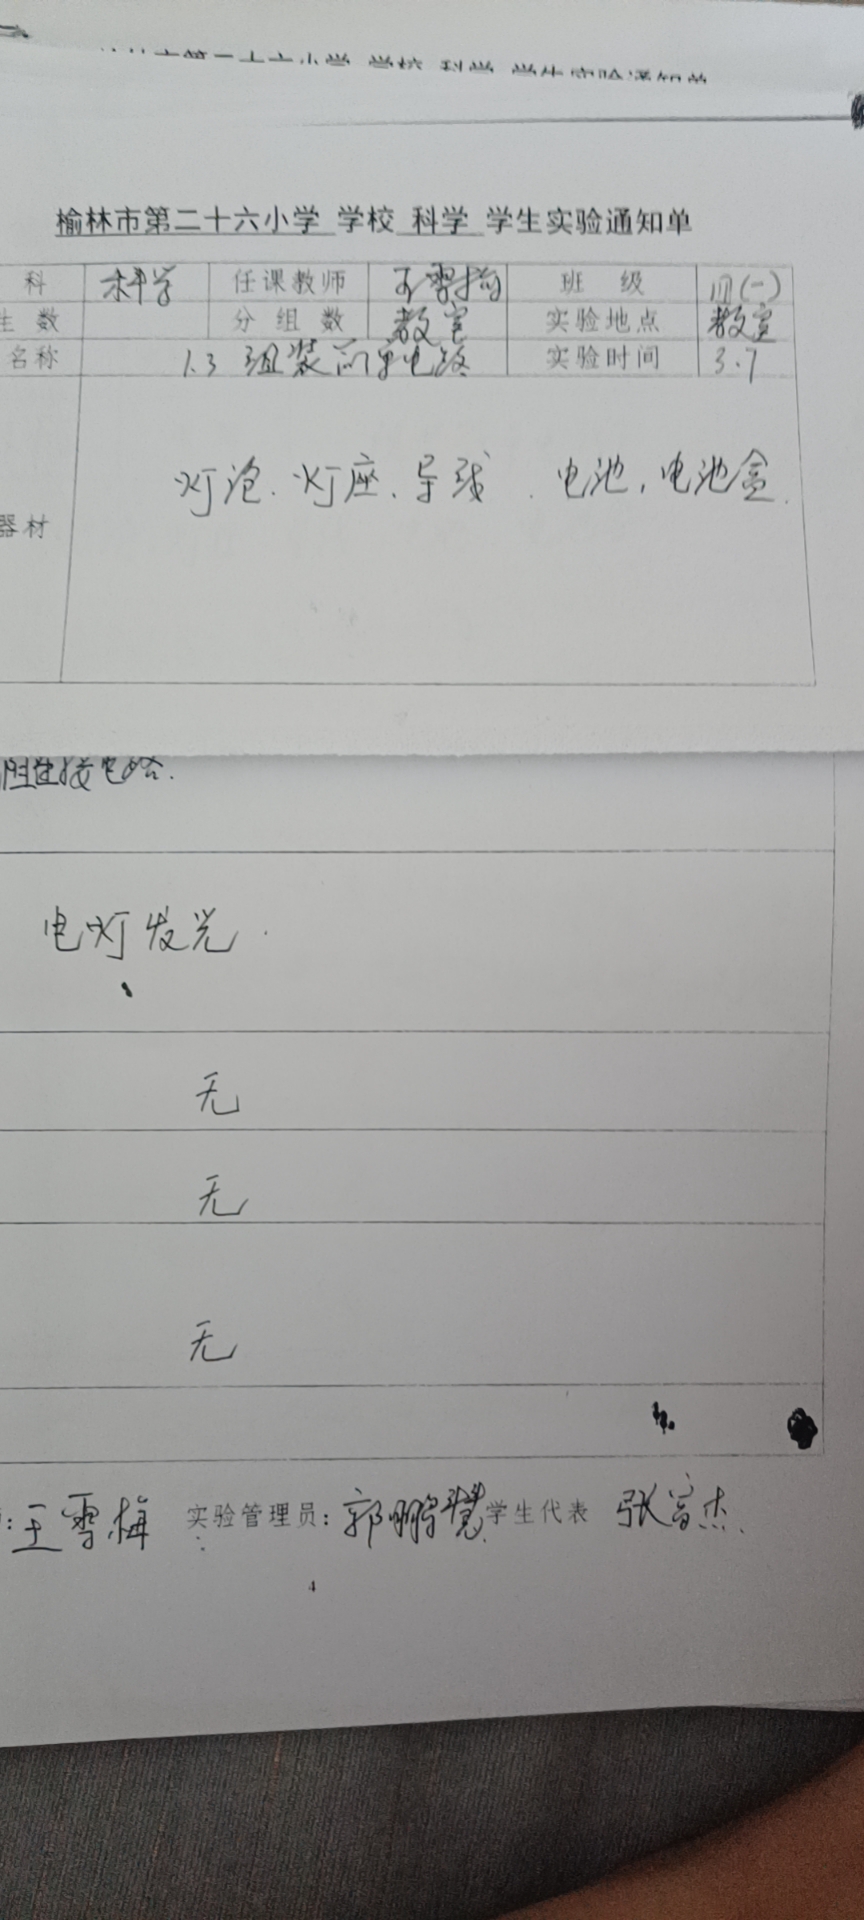 榆林市第二十六小学 学校 科学 学生实验通知单
科 科学 任课教师 王雪梅 班 级 四(一)
生 数 分 组 数 教室 实验地点 教室
名称 1.3 组装简单电路 实验时间 3.7
器材 灯泡、灯座、导线、电池、电池盒.
连接电路.
电灯发光.
无
无
无
王雪梅 实验管理员: 郭鹏慧 学生代表
4